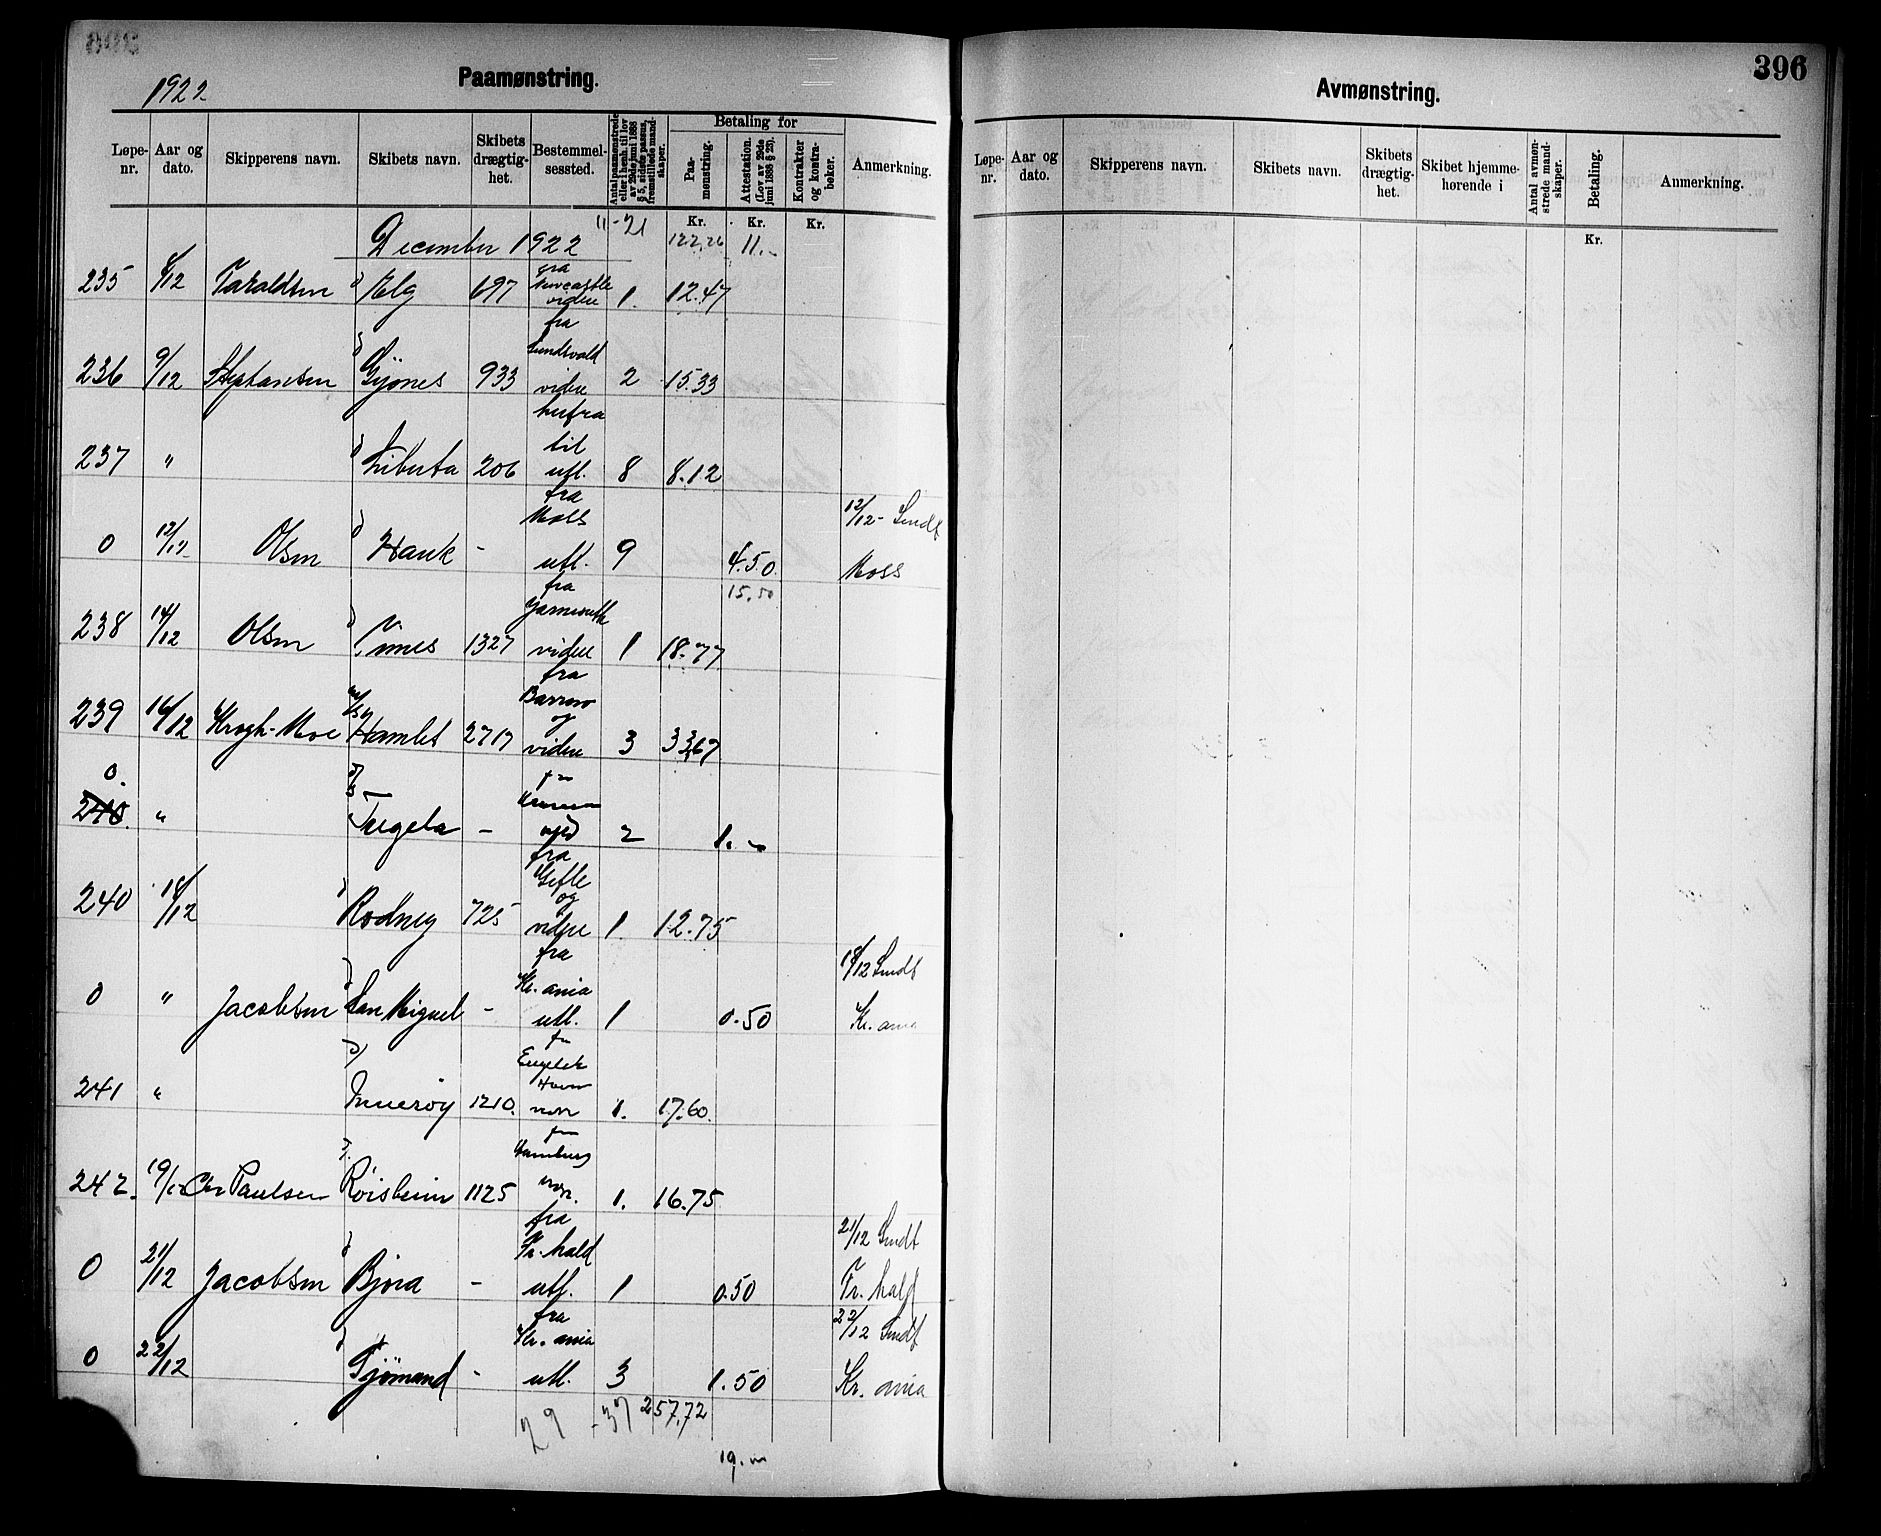 1922
Paamønstring.
Løpe-nr. Aar og dato. Skipperens navn. Skibets navn. Skibets drægtig-het. Bestemmel-sessted. Antal paamønstrede eller i henh. til lov av 29de juni 1888 § 5, sidste passus, fremstillede mand-skaper. Betaling for Paa-mønstring. Attestation. (Lov av 29de juni 1888 § 23). Kontrakter og kontra-bøker. Anmerkning.
Kr. Kr. Kr.
December 1922 11 - 21 122,26 11.-
235 /12 Taraldsen Elg 697 fra Newcastle videre 1. 12.47
236 9/12 Stephansen Gjønes 933 fra Sundsvald videre 2 15.33
237 " Liberta 206 herfra til utl. 8 8.12
0 12/12 Olsen Hauk - fra Moss utl. 9 4.50 12/12 - Sendt Moss
15,50
238 14/12 Olsen 1327 fra Yarmouth videre 1 18.77
239 16/12 Krogh-Moe Hamlet 2717 fra Barrow og videre 3 33,67
0. 240. " Tugela - 2 1.-
240 18/12 Rodney 725 fra Gefle og videre 1. 12.75
0 " Jacobsen San Miguel - fra Kr. ania utl. 1 0.50 18/12 Sendt Kr. ania
241 " Inuerøy 1210. 1. 17.60.
242. 19/12 Chr Paulsen Roisheim 1125 Hamburg 1. 16.75
0 21/12 Jacobsen Bjora - fra Fr. hald utl. 1 0.50 21/12 Sendt Fr. hald
0 22/12 Tjømand - fra Kr. ania utl. 3 1.50 22/12 Sendt Kr. ania
29 - 37 257,72
19.
396
Avmønstring.
Løpe-nr. Aar og dato. Skipperens navn. Skibets navn. Skibets drægtig-het. Skibet hjemme-hørende i Antal avmøn-strede mand-skaper. Betaling. Anmerkning.
Kr.